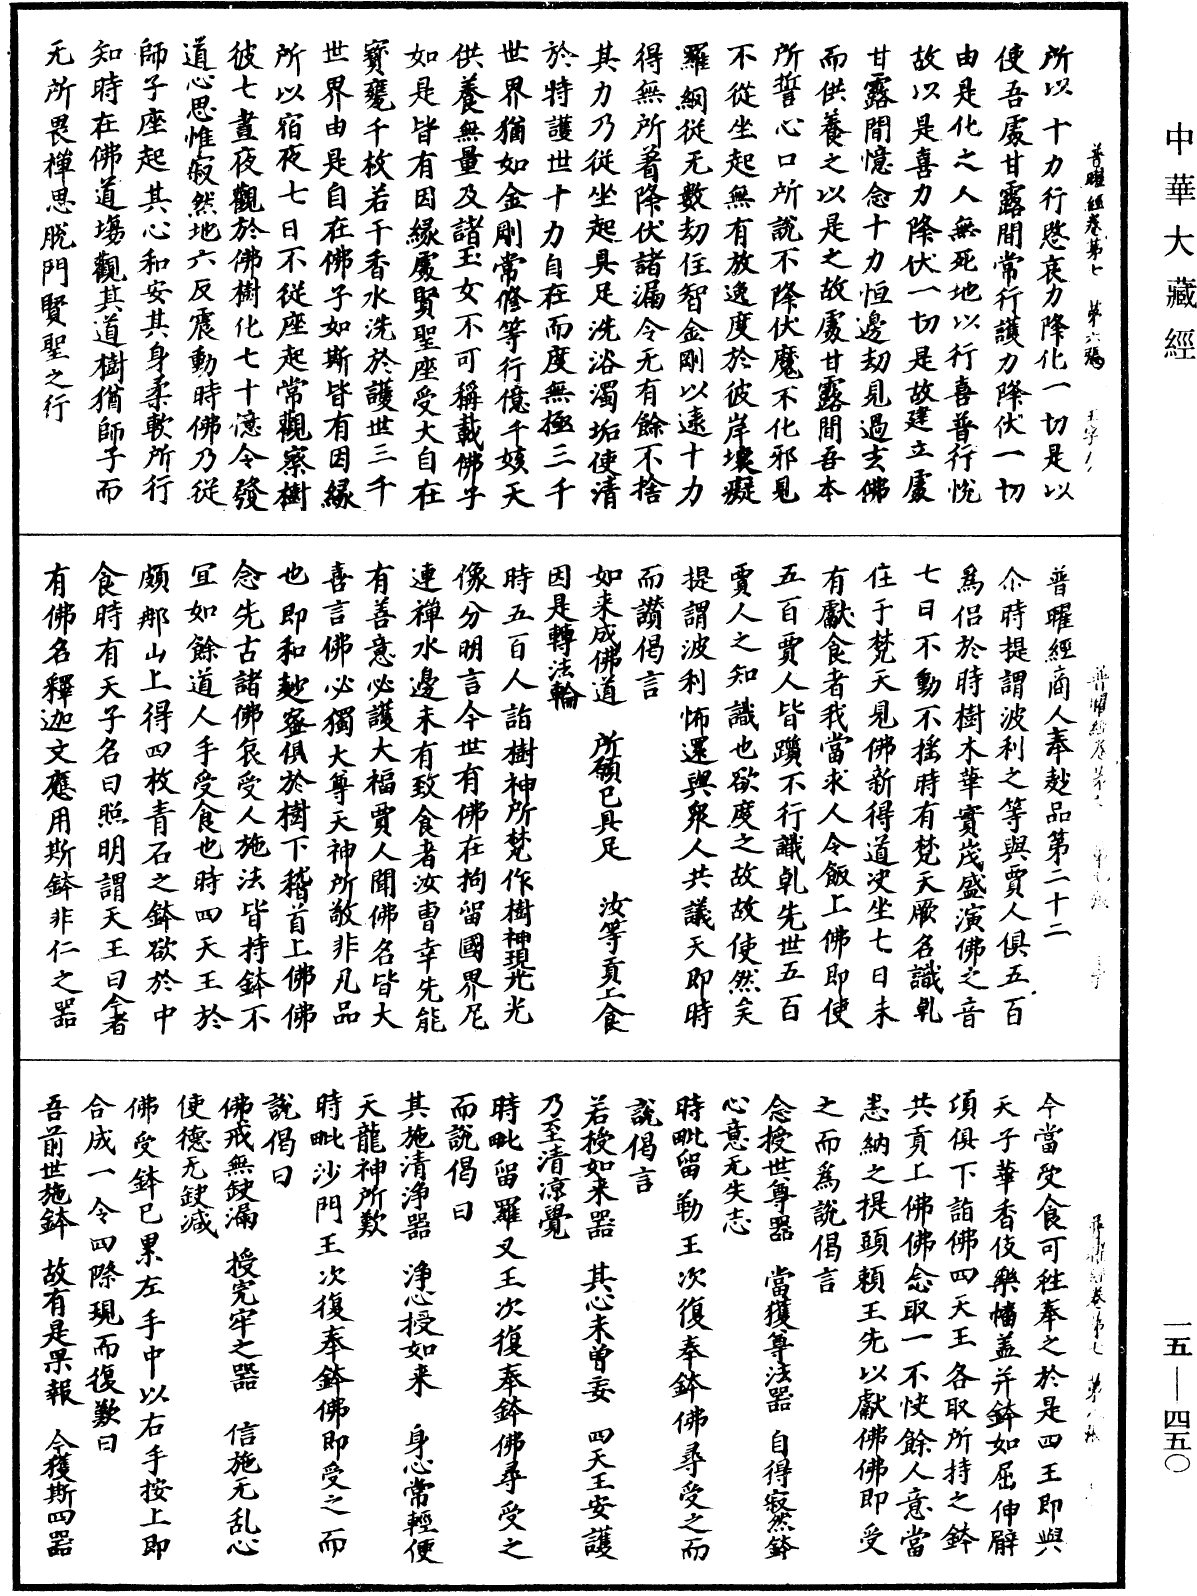 中華大藏經
所以十力行愍哀力降化一切是以
使吾處甘露間常行護力降伏一切
由是化之人無死地以行喜普行悅
故以是喜力降伏一切是故建立處
甘露間憶念十力恒邊劫見過去佛
而供養之以是之故處甘露間吾本
所誓心口所說不降伏魔不化邪見
不從坐起無有放逸度於彼岸壞癡
羅網從无數劫住智金剛以逮十力
得無所著降伏諸漏令无有餘不捨
其力乃從坐起具足洗浴濁垢使清
於特護世十力自在而度無極三千
世界猶如金剛常修等行億千姟天
供養無量及諸玉女不可稱載佛子
如是皆有因緣處賢聖座受大自在
寶甕千枚若干香水洗於護世三千
世界由是自在佛子如斯皆有因緣
所以宿夜七日不從座起常觀察樹
彼七晝夜觀於佛樹化七十億令發
道心思惟寂然地六反震動時佛乃從
師子座起其心和安其身柔軟所行
知時在佛道場觀其道樹猶師子而
无所畏禪思脫門賢聖之行
普曜經商人奉麨品第二十二
尒時提謂波利之等與賈人俱五百
為侶於時樹木華實茂盛演佛之音
七日不動不搖時有梵天厥名識乹
住于梵天見佛新得道快坐七日未
有獻食者我當求人令飯上佛即使
五百賈人皆躓不行識乹先世五百
賈人之知識也欲度之故故使然矣
提謂波利怖還與眾人共議天即時
而讚偈言
如来成佛道 所願已具足 汝等貢上食
因是轉法輪
時五百人詣樹神所梵作樹神現光光
像分明言今世有佛在拘留國界尼
連禪水邊未有致食者汝曹幸先能
有善意必護大福賈人聞佛名皆大
喜言佛必獨大尊天神所敬非凡品
也即和麨蜜俱於樹下稽首上佛佛
念先古諸佛哀受人施法皆持鉢不
宜如餘道人手受食也時四天王於
頗那山上得四枚青石之鉢欲於中
食時有天子名曰照明謂天王曰今者
有佛名釋迦文應用斯鉢非仁之器
今當受食可往奉之於是四王即與
天子華香伎樂幡蓋并鉢如屈伸臂
項俱下詣佛四天王各取所持之鉢
共貢上佛佛念取一不快餘人意當
悉納之提頭賴王先以獻佛佛即受
之而為說偈言
念授世尊器 當獲尊法器 自得寂然鉢
心意无失志
時毗留勒王次復奉鉢佛尋受之而
說偈言
若授如来器 其心未曾妄 四天王安護
乃至清凉覺
時毗留羅叉王次復奉鉢佛尋受之
而說偈曰
其施清淨器 淨心授如来 身心常輕便
天龍神所歎
時毗沙門王次復奉鉢佛即受之而
說偈曰
佛戒無缺漏 授完牢之器 信施无乱心
使德无缺減
佛受鉢已累左手中以右手按上即
合成一令四際現而復歎曰
吾前世施鉢 故有是果報 今獲斯四器
普曜經卷第七 第六張
普曜經卷第七
普曜經卷第七
一五—四五〇